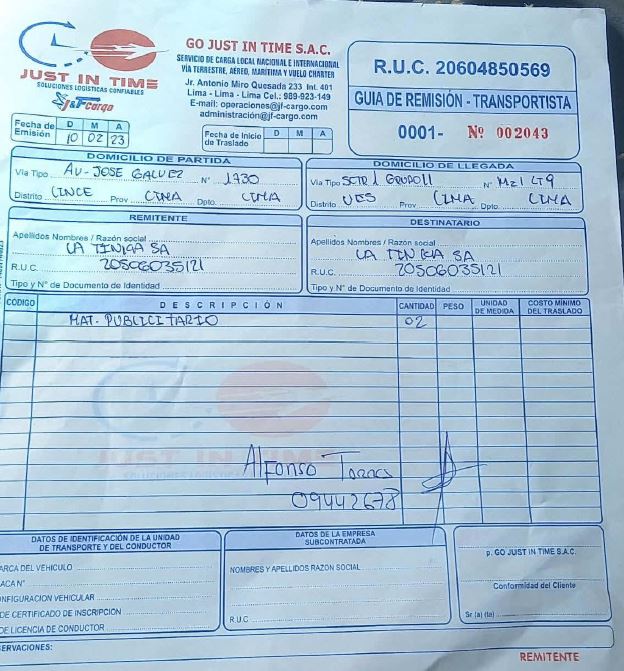 JUST IN TIME
SOLUCIONES LOGISTICAS CONFIABLES
J&Fcargo
GO JUST IN TIME S.A.C.
SERVICIO DE CARGA LOCAL NACIONAL E INTERNACIONAL
VÍA TERRESTRE, AEREO, MARÍTIMA Y VUELO CHARTER
Jr. Antonio Miro Quesada 233 Int. 401
Lima - Lima - Lima Cel.: 989-923-149
E-mail: operaciones@jf-cargo.com
administración@jf-cargo.com
R.U.C. 20604850569
GUIA DE REMISIÓN - TRANSPORTISTA
0001- Nº 002043
Fecha de Emisión D M A
10 02 23
Fecha de Inicio de Traslado D M A
DOMICILIO DE PARTIDA
Via Tipo AV-JOSE GALVEZ Nº 1730
Distrito LINCE Prov LIMA Dpto. LIMA
DOMICILIO DE LLEGADA
Via Tipo SCTR 1 GRUPO 11 Nº MZ1 LT9
Distrito VES Prov LIMA Dpto. LIMA
REMITENTE
Apellidos Nombres / Razón social
LA TINKA SA
R.U.C. 20506035121
Tipo y Nº de Documento de Identidad
DESTINATARIO
Apellidos Nombres / Razón social
LA TINKA SA
R.U.C. 20506035121
Tipo y Nº de Documento de Identidad
CÓDIGO DESCRIPCIÓN CANTIDAD PESO UNIDAD DE MEDIDA COSTO MÍNIMO DEL TRASLADO
MAT. PUBLICITARIO 02
JUST IN TIME
Alfonso Torres
09442678
DATOS DE IDENTIFICACIÓN DE LA UNIDAD
DE TRANSPORTE Y DEL CONDUCTOR
ARCA DEL VEHÍCULO
ACA Nº
NFIGURACION VEHICULAR
DE CERTIFICADO DE INSCRIPCION
DE LICENCIA DE CONDUCTOR
DATOS DE LA EMPRESA
SUBCONTRATADA
NOMBRES Y APELLIDOS RAZON SOCIAL
R.U.C
p. GO JUST IN TIME S.A.C.
Conformidad del Cliente
Sr (a) (ta)
ERVACIONES:
REMITENTE